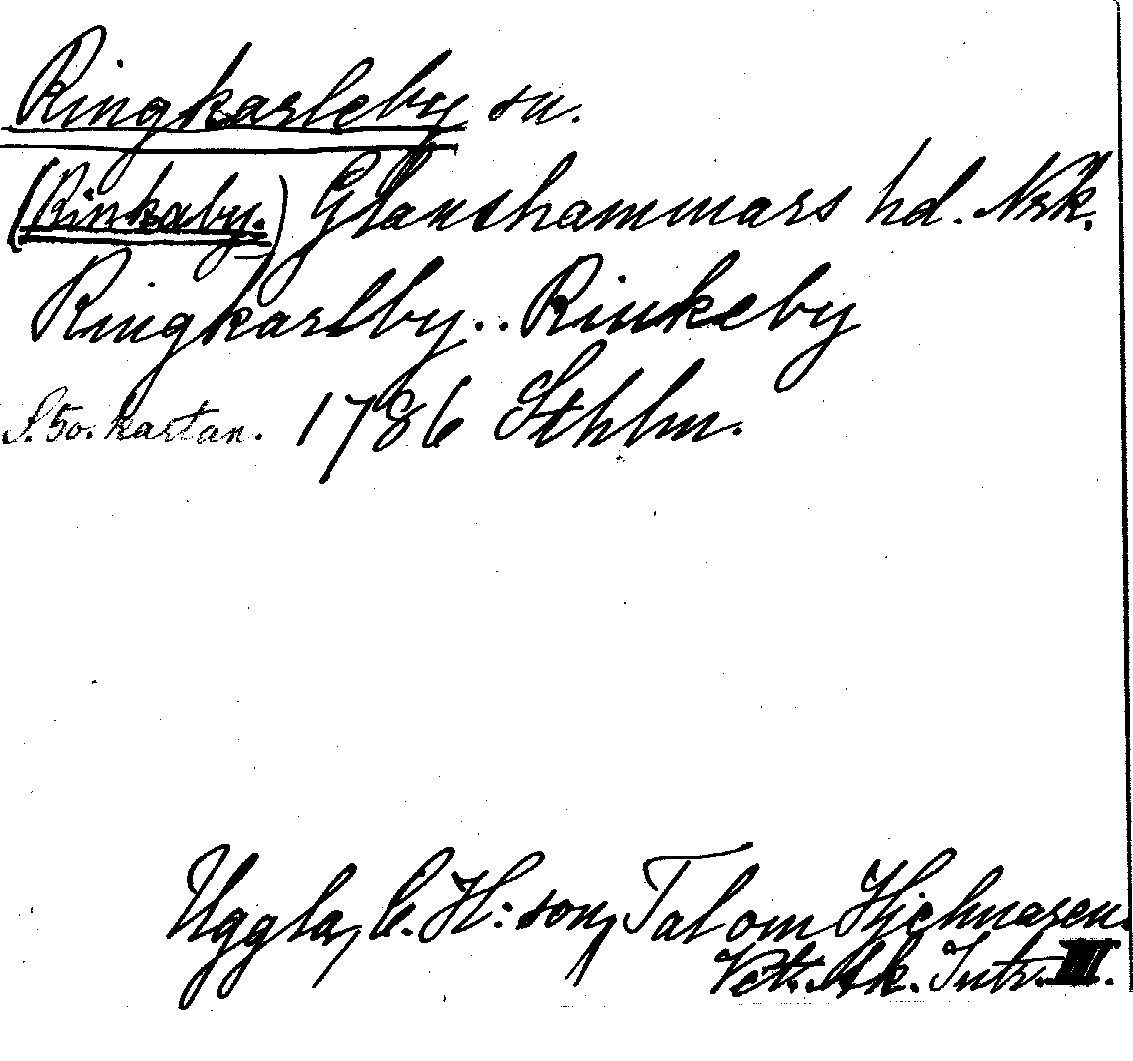 Ringkarleby sn.
(Rinkaby.) Glanshammars hd. Nrk.
Ringkarlby.. Rinkeby
S. 50. kartan. 1786 Sthlm.
Uggla, C. H:son, Tal om Hjelmaren.
Vet. Ak. Intr. III.